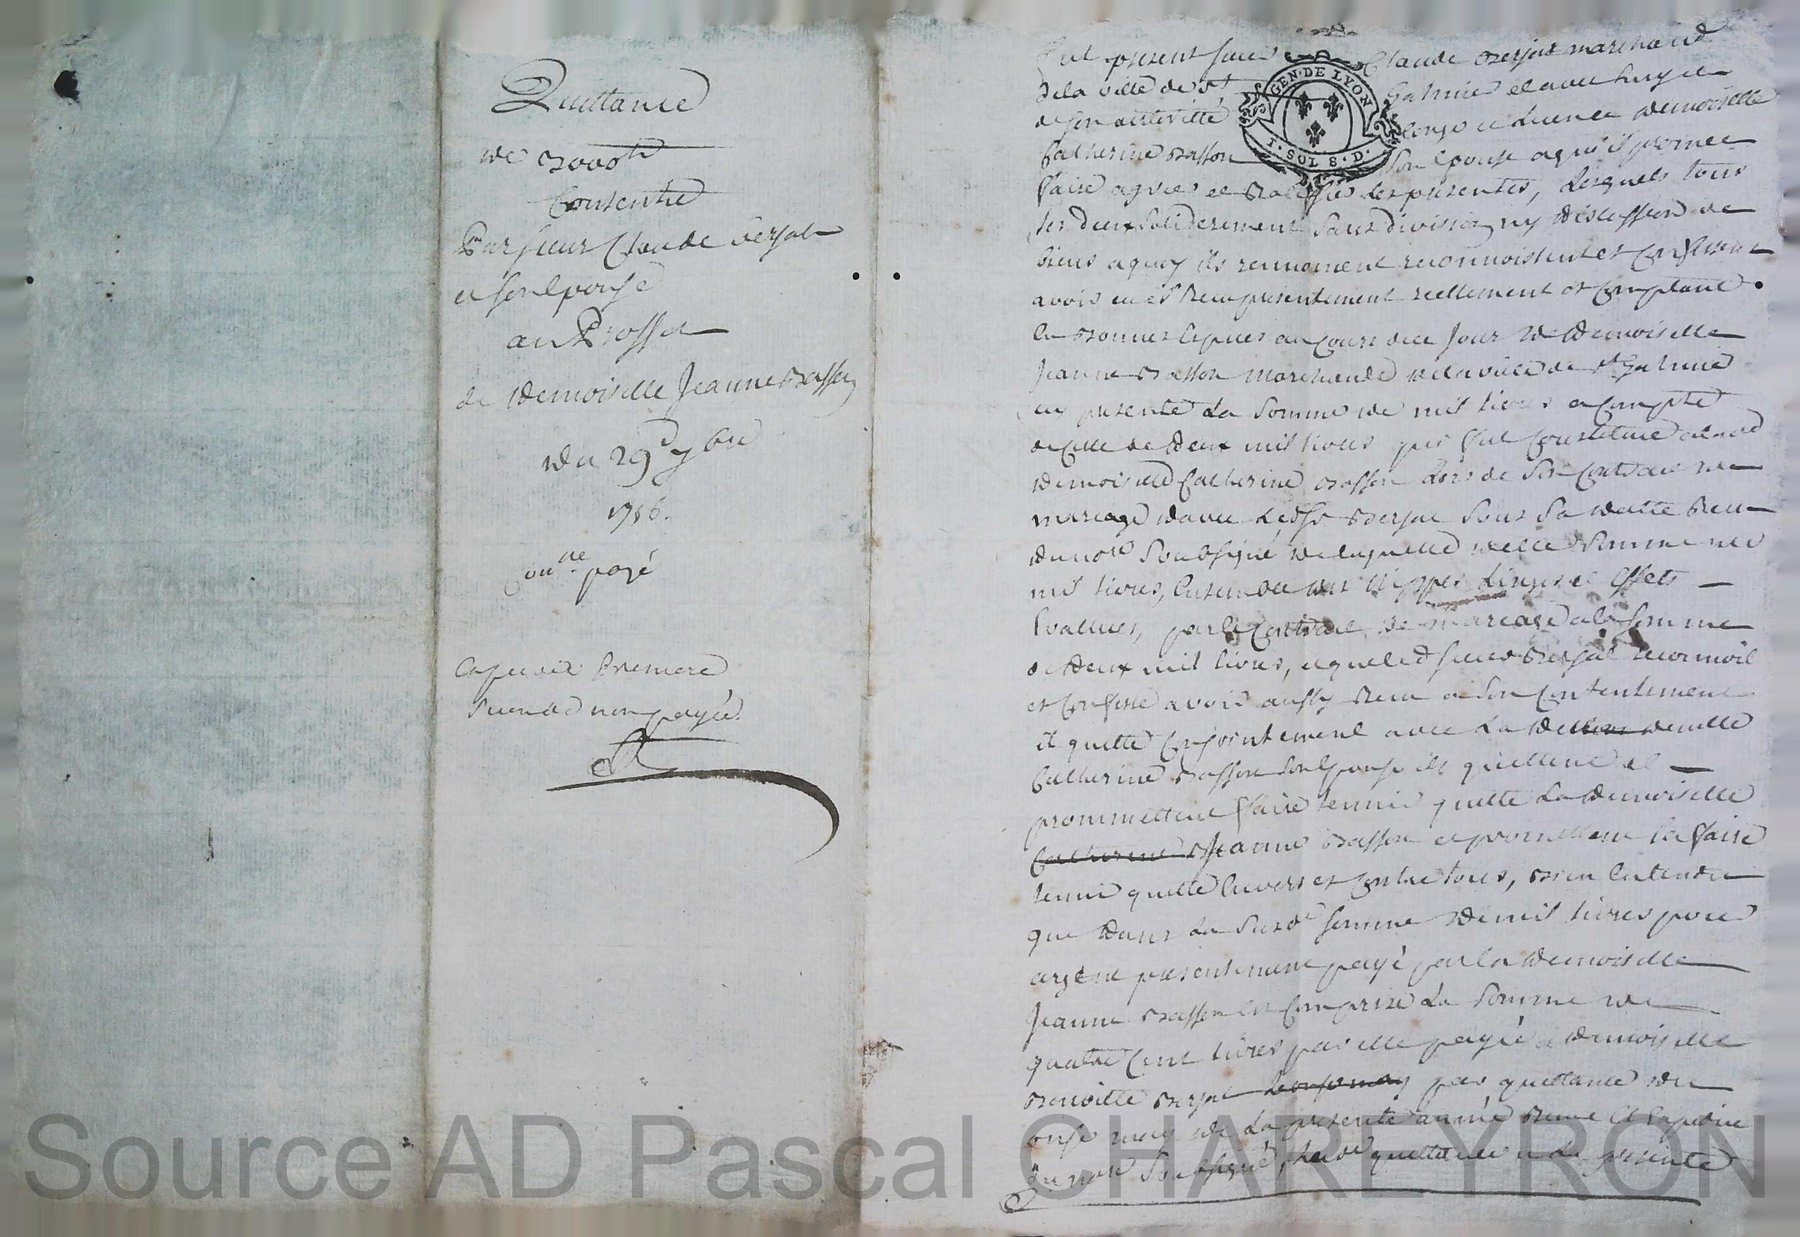 Quittance
de 3000ᵗᵗ
Consentie
Par sieur Claude Verjat
et son Epouse
au Proffit
de Demoiselle Jeanne Basson
du 29 7bre
1756.
Con.ne payé
Expedié Premiere
non payée
GEN·DE LYON
1·SOL 8·D·
Fut present sieur Claude Verjat marchand
dela ville de St Galmier et avec luy et
de son authorité Licence demoiselle
Catherine Basson son Epouse a qui il promet
faire agreer et Ratiffier les presentes, Lesquels tous
les deux solidairement sans division ny discussion de
biens a quoy ils renoncent reconnoissent et Confessent
avoir eu et Receu presentement reellement et Comptant
en bonnes Especes au Cours de ce Jour de Demoiselle
Jeanne Basson Marchande dela ville de St Galmier
icy presente La Somme de mil livres a Compte
de Celle de deux mil livres qui fut Constituée a lad
demoiselle Catherine Basson Lors de son Contrat de
mariage d'avec Ledsr Verjat sous sa datte Receu
du nore Soubsigné de laquelle somme de
mil livres, Ensemble des Linges et Effets
Evalués, par le Contrat de mariage a la somme
de deux mil livres, sieur Verjat reconnoit
et Confesse avoir aussy Receu a son Contentement
il quitte Conjointement avec La demoiselle
Catherine Basson son Epouse ils quittent et
promettent faire tenir quitte La demoiselle
Catherine Jeanne Basson et promettent la faire
tenir quitte Envers et Contre tous, bien Entendu
que dans La Susde somme de mil livres pour
argent presentement payé par la Demoiselle
Jeanne Basson est Comprise La Somme de
quatre Cent livres par elle payée a demoiselle
Verjat par quittance du
onze may de La presente année Receue et Expediée
du nore Soubsigné, quittance et La presente
Source AD Pascal CHARLEYRON